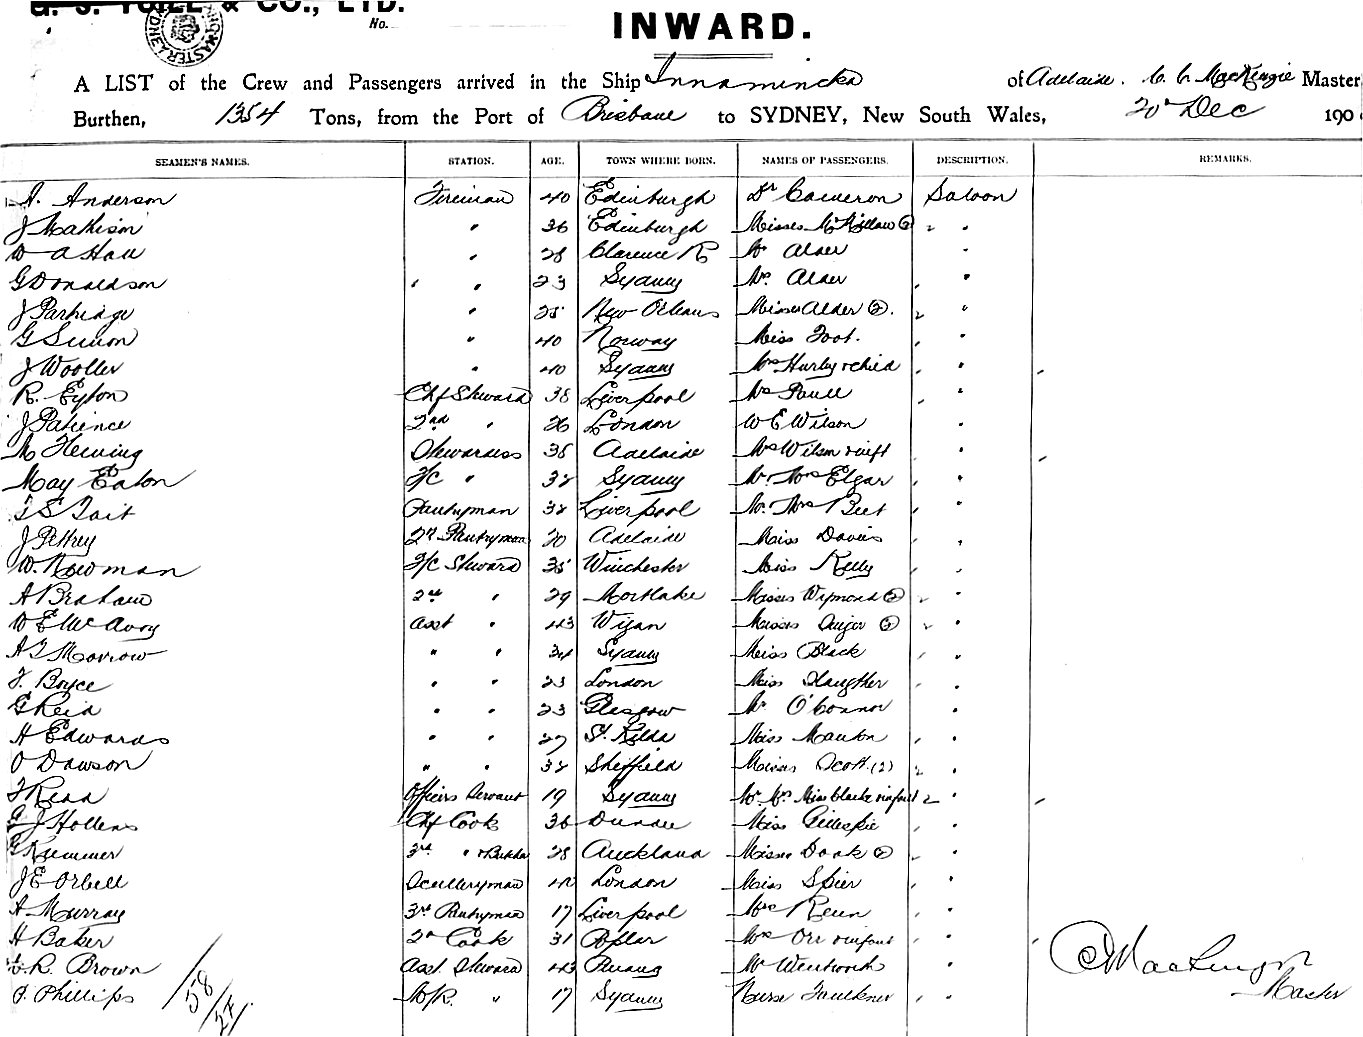 & CO., LTD.
No.
INWARD.
A LIST of the Crew and Passengers arrived in the Ship Innamincka of Adelaide. C. C. MacKenzie Master
Burthen, 1354 Tons, from the Port of Brisbane to SYDNEY, New South Wales, 20 Dec 190
SEAMEN'S NAMES. STATION. AGE. TOWN WHERE BORN. NAMES OF PASSENGERS. DESCRIPTION. REMARKS.
A. Anderson Fireman 40 Edinburgh Dr Cameron Saloon
J Mathison " 36 Edinburgh Misses (2) "
W A Hall " 28 Clarence R Mr Alder "
G Donaldson " " 23 Sydney Mrs Alder "
J Partridge " 25 New Orleans Misses Alder (2). 2 "
G " 40 Norway Miss Foot. "
J Wooller " 40 Sydney Mrs Hurley & child "
R. Eyton Chf Steward 38 Liverpool Mrs Paull "
J Patience 2nd " 26 London W E Wilson "
M Fleming Stewardess 38 Adelaide Mrs Wilson & inft "
May Eaton F/C " 32 Sydney Mr. Mrs Elgar "
T S Tait Pantryman 32 Liverpool Mr. Mrs Beet "
J Pethey 2nd Pantryman 20 Adelaide Miss Davies "
W. Newman F/C Steward 35 Winchester Miss Kelly "
A Braham 2nd " 29 Mortlake Misses Wymond (2) 2 "
W E McAvoy Asst " 43 Wigan Misses (2) 2 "
A J Morrow " " 34 Sydney Miss Black "
F. Boyce " " 23 London Miss Slaughter "
G Reid " " 23 Glasgow Mr O'Connor "
H Edwards " " 27 St. Kilda Miss Manton "
O Dawson " " 32 Sheffield Misses Scott (2) 2 "
J Read Officers Servant 19 Sydney Mr. Mrs Miss Clarke & infant 2 "
G J Hollens Chf Cook 36 Dundee Miss Gillespie "
G Kummer 3rd " & Butcher 28 Auckland Misses Doak (2) 2 "
J E Orbell Sculleryman 40 London Miss Spier "
A Murray 3rd Pantryman 17 Liverpool Mrs "
H Baker 2nd Cook 31 Poplar Mrs Orr & infant "
R. Brown Asst Steward 43 Mr Wentworth "
P. Phillips M/R. " 17 Sydney Nurse Faulkner "
58/27/.
C C MacKenzie
Master